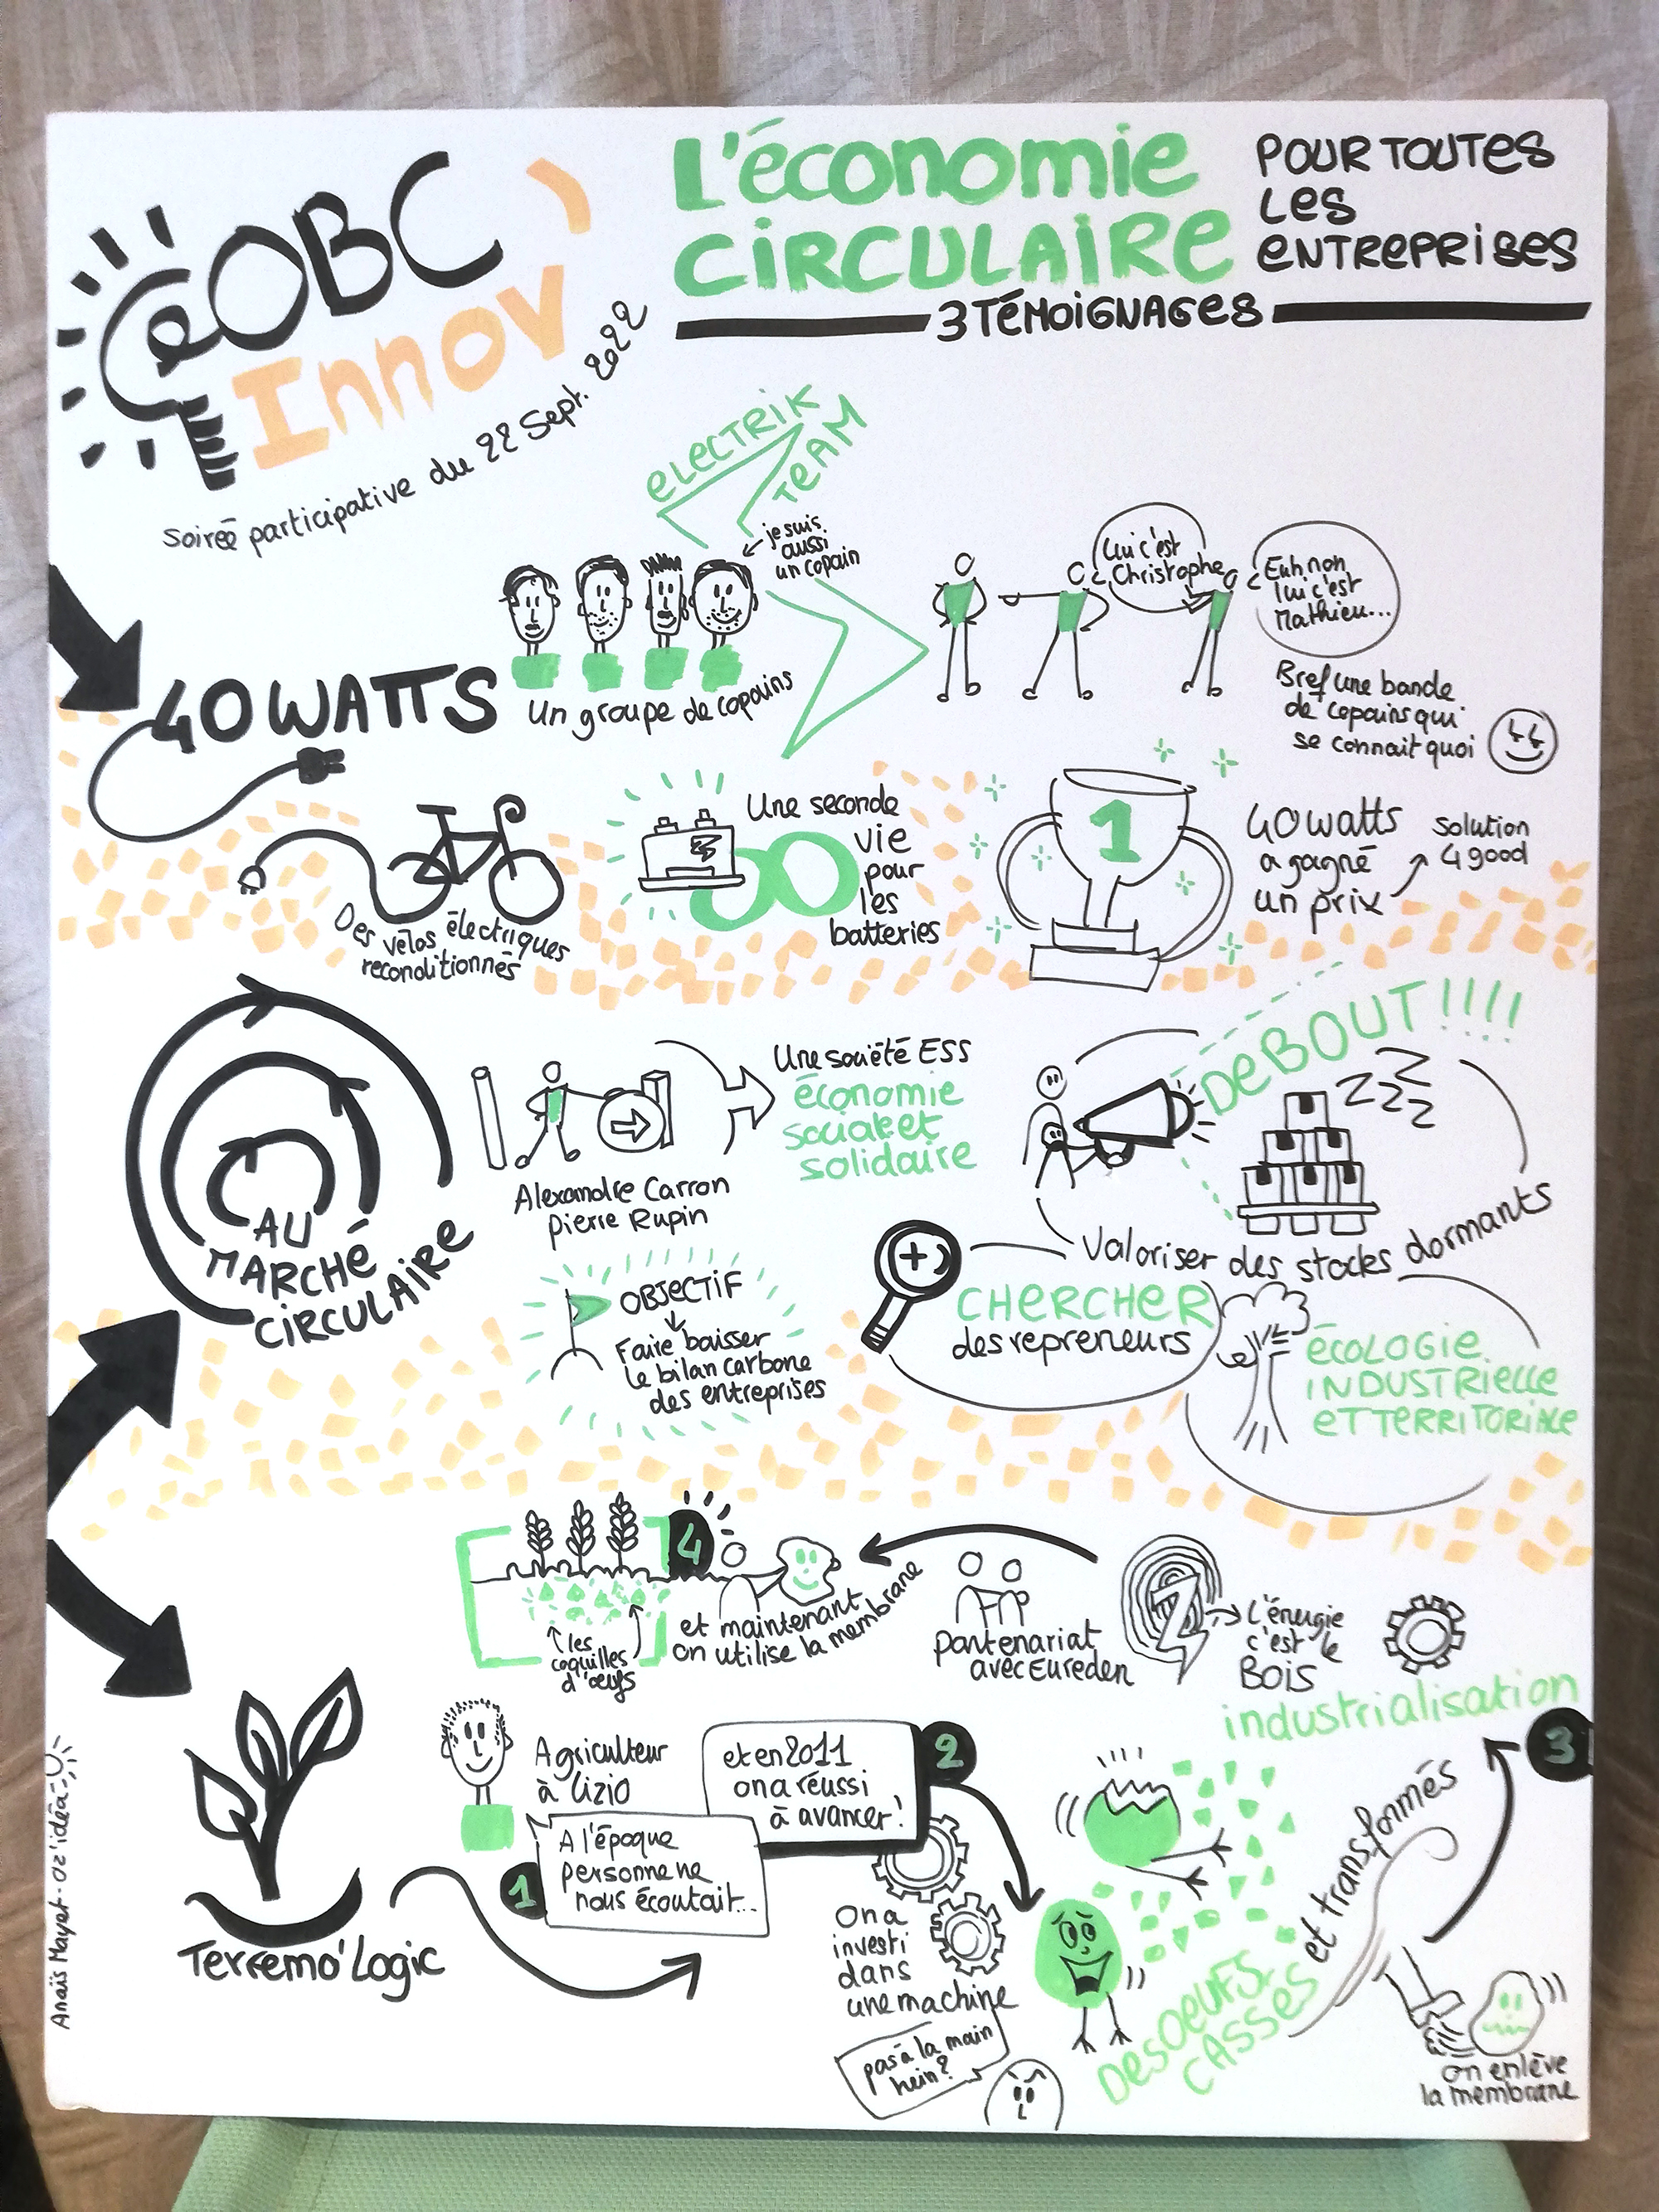 OBC
Innov
Soirée participative du 22 Sept. 2022
L'économie
CIRCULAIRE
POUR TOUTES
LES
ENTREPRISES
3 TÉMOIGNAGES
ELECTRIK
TEAM
je suis
aussi
un copain
40 WATTS
Un groupe de copains
Lui c'est
Christophe
Euh non
lui c'est
Mathieu...
Bref une bande
de copains qui
se connait quoi
Des vélos électriques
reconditionnés
Une seconde
vie
pour
les
batteries
1
40 watts
a gagné
un prix
Solution
4 good
AU
MARCHÉ
CIRCULAIRE
Alexandre Carron
Pierre Rupin
Une société ESS
économie
sociale et
solidaire
DEBOUT !!!!
ZZZ
zzz
Valoriser des stocks dormants
OBJECTIF
Faire baisser
le bilan carbone
des entreprises
CHERCHER
des repreneurs
ÉCOLOGIE
INDUSTRIELLE
ET TERRITORIALE
4
les
coquilles
d'œufs
et maintenant
on utilise la membrane
partenariat
avec Eureden
L'énergie
c'est le
BOIS
industrialisation
3
Terremo'Logic
Agriculteur
à Lizio
1
A l'époque
personne ne
nous écoutait...
et en 2011
on a réussi
à avancer !
2
On a
investi
dans
une machine
pas à la main
hein?
DES OEUFS
CASSÉS
et transformés
on enlève
la membrane
Anaïs Mayet - oz'idéa